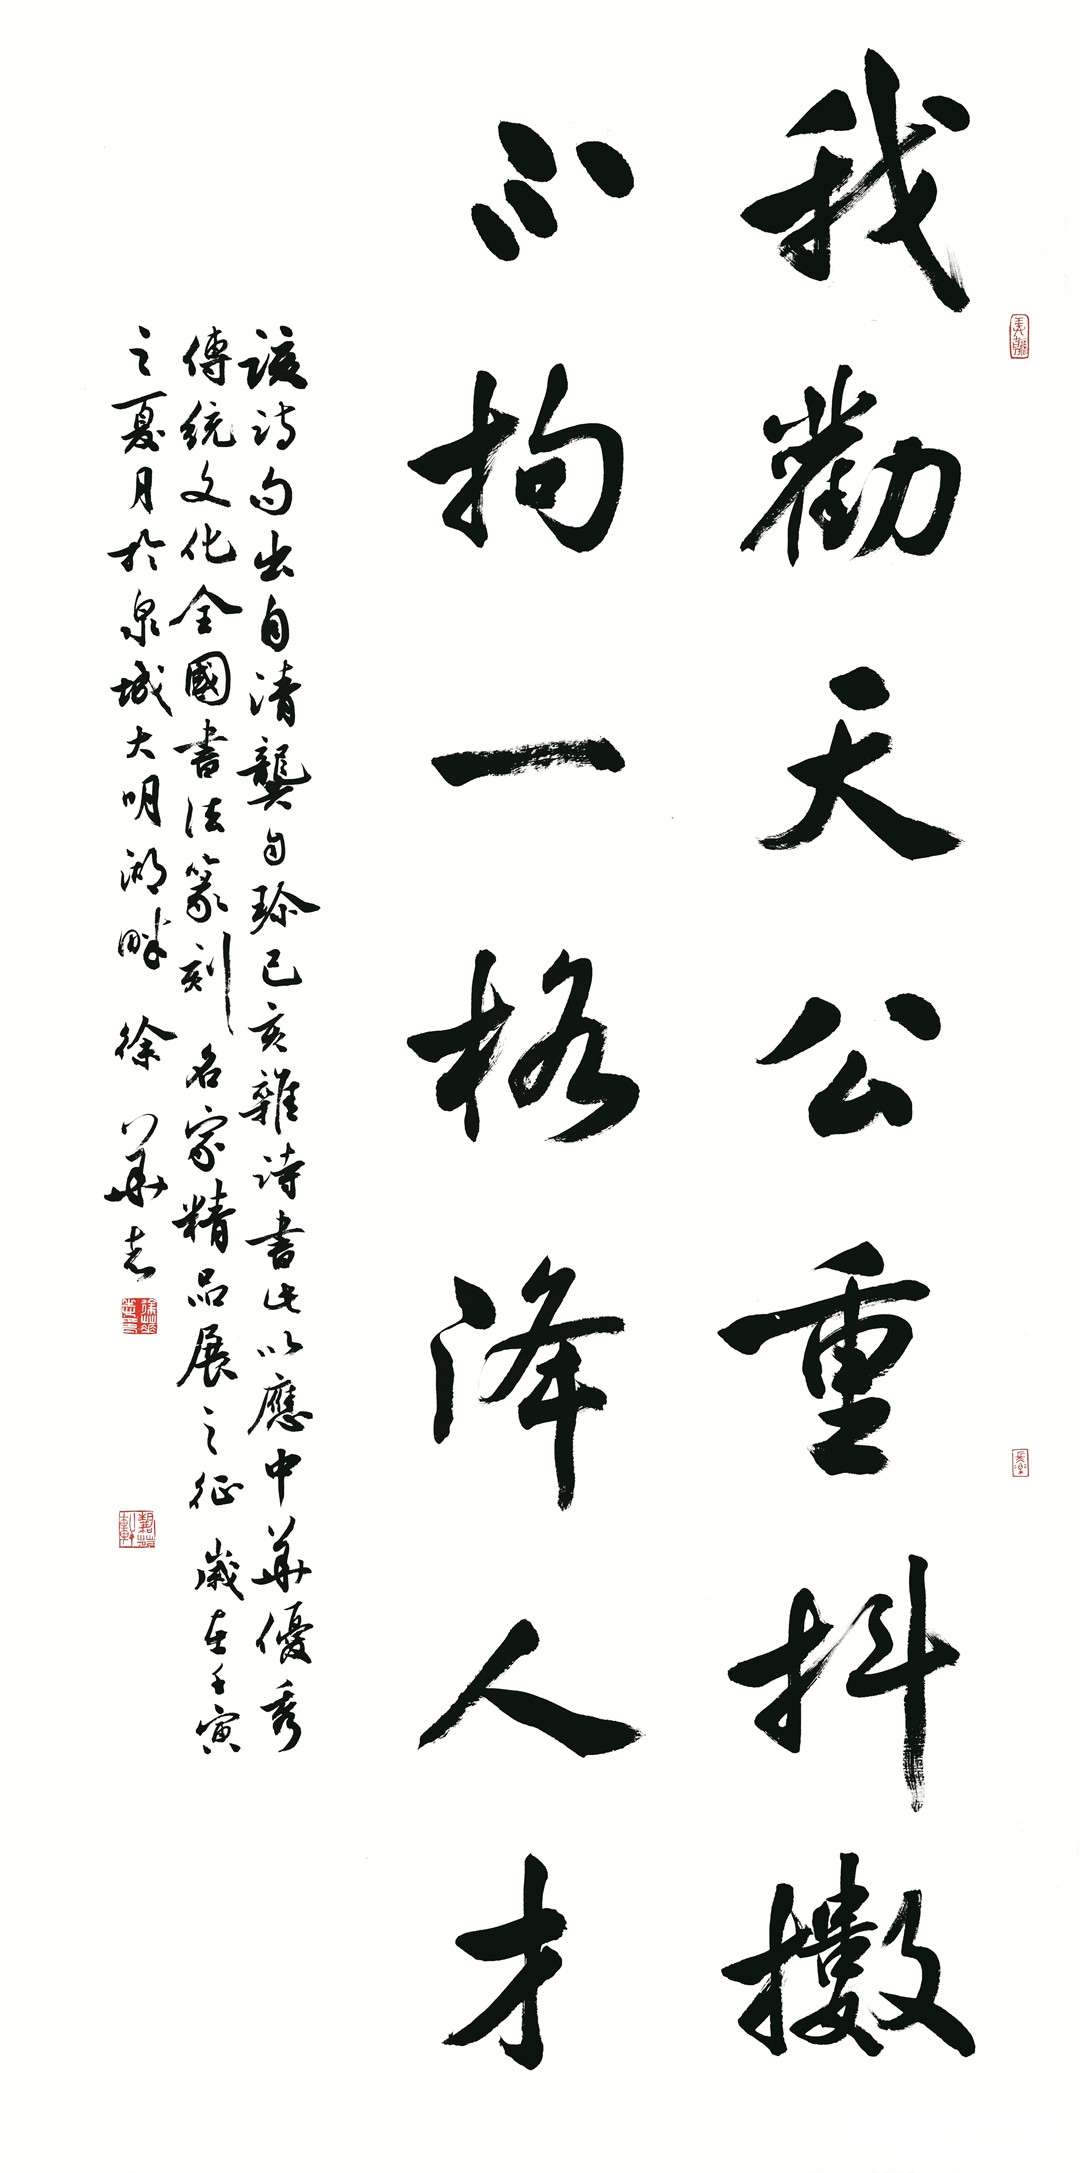 我勸天公重抖擻
不拘一格降人才
該詩句出自清龔自珍己亥雜詩書此以應中華優秀
傳統文化全國書法篆刻名家精品展之征歲在壬寅
之夏月於泉城大明湖畔 徐華志